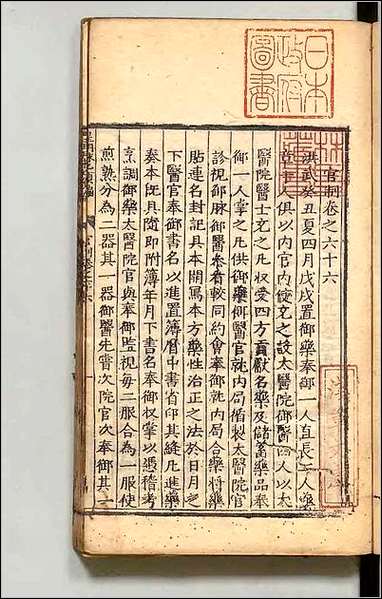 日本
政府
圖書
官制卷之六十六
洪武癸丑夏四月戊戌置御藥奉御一人直長二人藥
人俱以内官内使充之設太醫院御醫四人以太
醫院醫士充之凡收受四方貢獻名藥及儲蓄藥品奉
御一人掌之凡供御藥餌醫官就内局脩製太醫院官
診視御脉御醫參看較同約會奉御就内局合藥將
貼連名封記具本開寫本方藥性治正之法於日月之
下醫官奉御書名以進置簿曆中書省印其縫凡進藥
奏本既具隨即附簿年月下書名奉御收掌以憑稽考
烹調御藥太醫院官與奉御監視每二服合為一服使
煎熟分為二器其一器御醫先嘗次院官次奉御其一